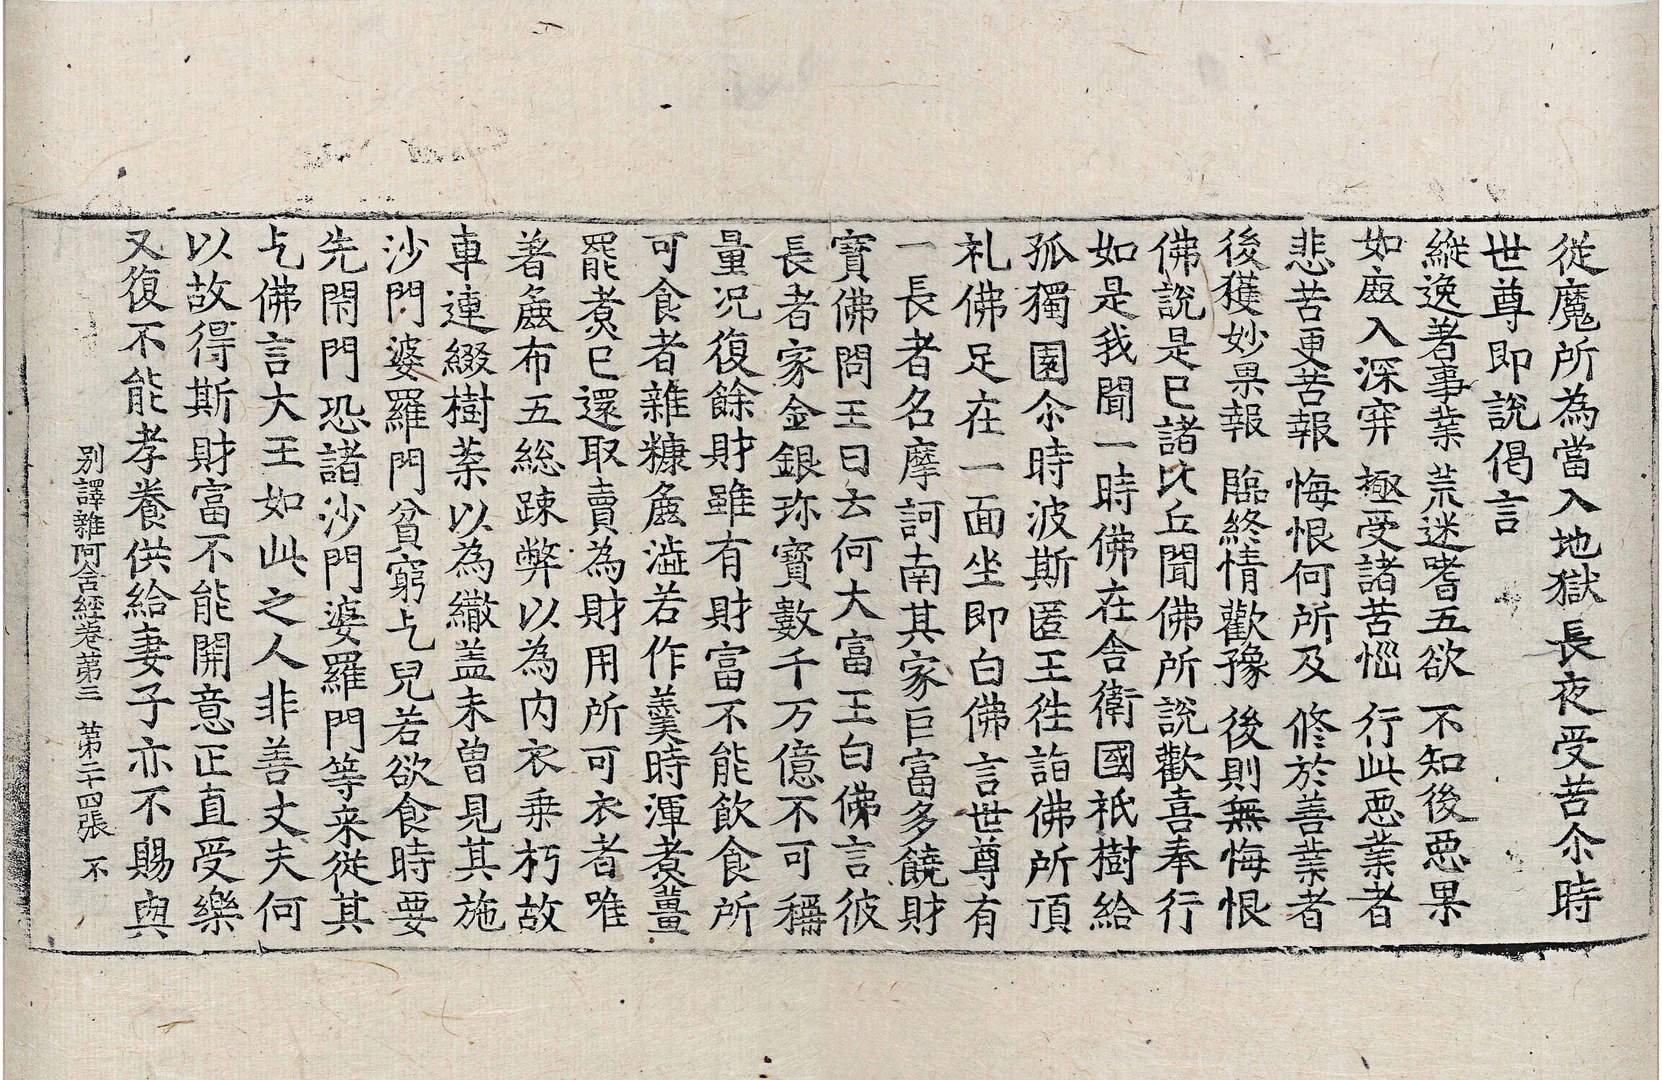 從魔所為當入地獄長夜受苦尒時
世尊即說偈言
縱逸著事業 荒迷嗜五欲 不知後惡果
如䴥入深穽 極受諸苦惱 行此惡業者
悲苦更苦報 悔恨何所及 修於善業者
後獲妙果報 臨終情歡豫 後則無悔恨
佛說是已諸比丘聞佛所說歡喜奉行
如是我聞一時佛在舍衛國祇樹給
孤獨園尒時波斯匿王往詣佛所頂
礼佛足在一面坐即白佛言世尊有
一長者名摩訶南其家巨富多饒財
寶佛問王曰云何大富王白佛言彼
長者家金銀珎寶數千万億不可稱
量況復餘財雖有財富不能飲食所
可食者雜糠麁澁若作羹時渾煮薑
罷煮已還取賣為財用所可衣者唯
著麁布五総踈弊以為內衣乗朽故
車連綴樹葉以為繖盖未曽見其施
沙門婆羅門貧窮乞兒若欲食時要
先閇門恐諸沙門婆羅門等来從其
乞佛言大王如此之人非善丈夫何
以故得斯財富不能開意正直受樂
又復不能孝養供給妻子亦不賜與
別譯雜阿含經卷第三 第二十四張 不